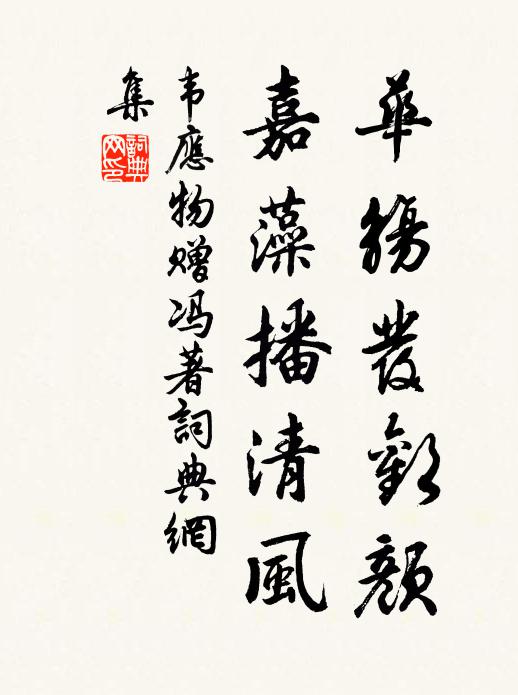 華觴發歡顏
嘉藻播清風
韦應物贈冯著詞典網
集
詞典網印